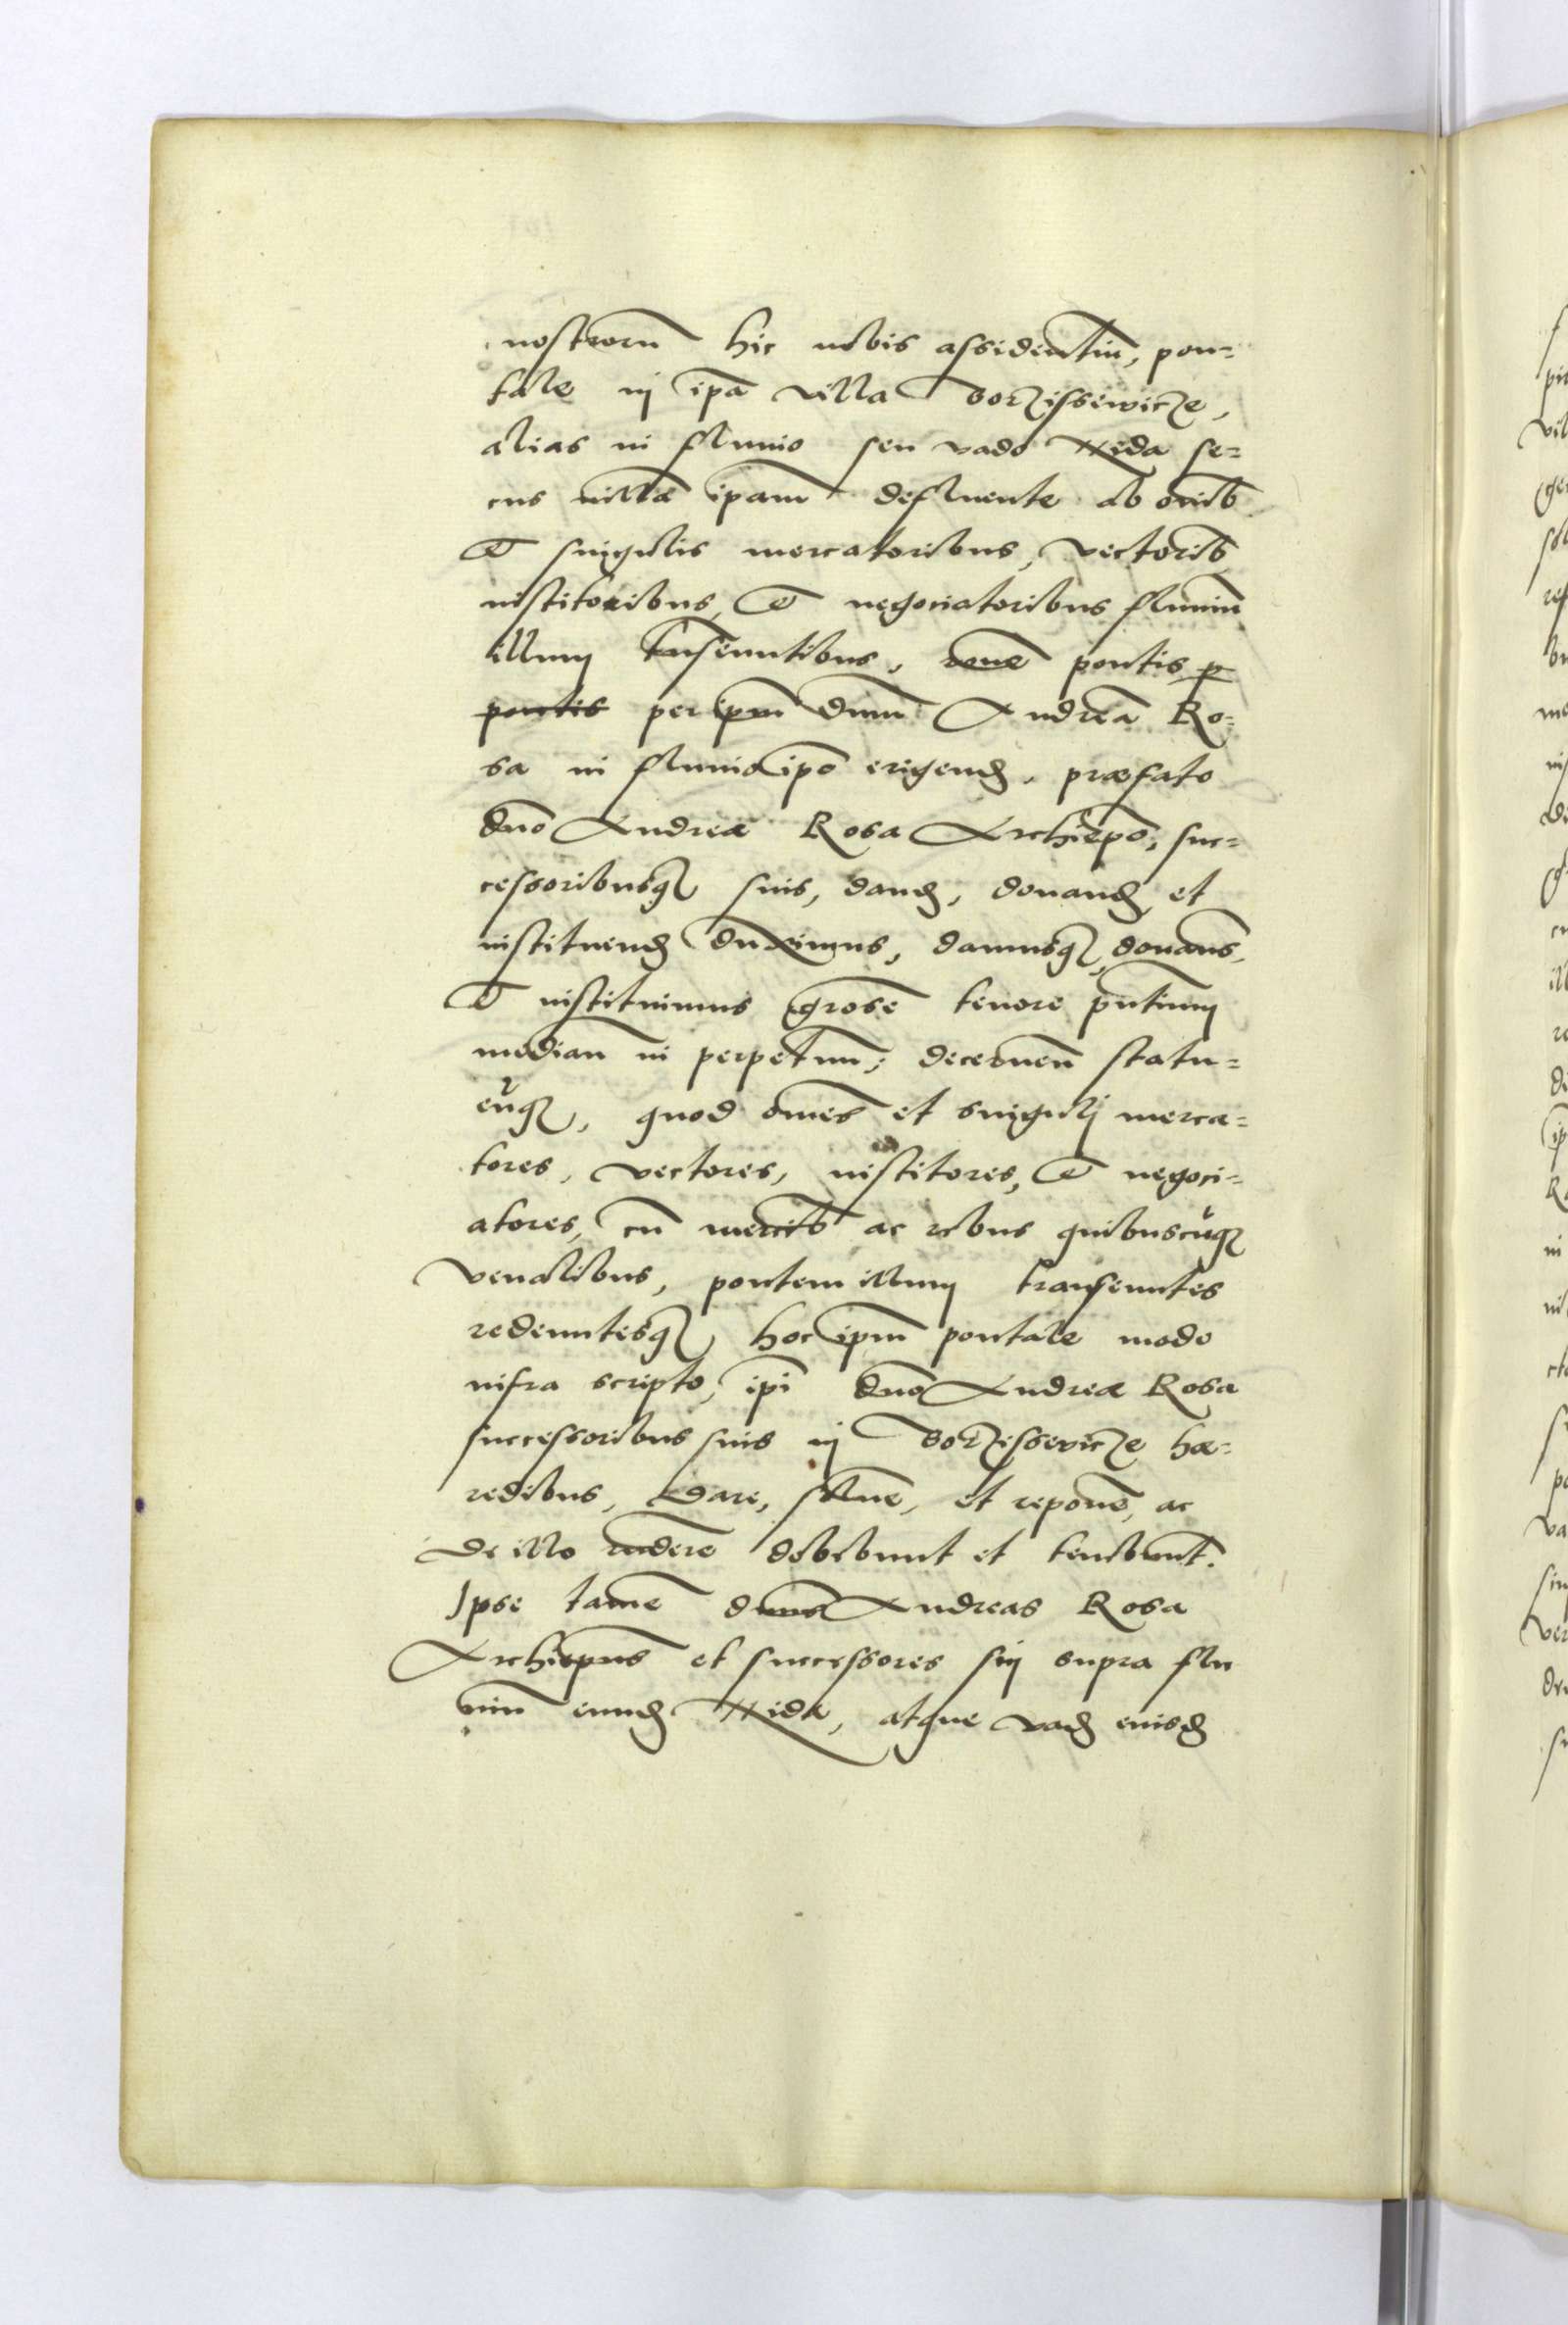 nostrorū hic nobis assidentiū, pon=
tale in ipa villa Borzissewicze,
alias in fluuio seu vado Nida se=
cus villā ipam defluente ab oīnib
Et singulis mercatoribus, vectorib
institoribus, Et negociatoribus fluuiū
illum trāseuntibus, rōne pontis p
pontis per ipm Dnm Andreā Ro=
sa in fluuio ipo erigend, præfato
Dno Andreæ Rosa Archiepo, suc=
cessoribusq suis, dand, donand, et
instituend duximus, damusq, donams,
Et instituimus grose tenore pntium
median in perpetuū; decernen statu=
enq, quod omēs et singuli merca=
tores, vectores, institores, Et negoci=
atores, cū mercib ac rebus quibuscūq
venalibus, pontem illum transeuntes
redeuntesq hoc ipm pontale modo
infra scripto, ipi Dno Andreæ Rosa
successoribus suis in Borzissewicze hæ=
redibus, Dare, soluē, et reponē, ac
De illo rndere debebunt et tenebunt.
Ipse tamē dnus Andreas Rosa
Archiepus et successores sui supra flu
uiū eund Nida, atque vad eiusd